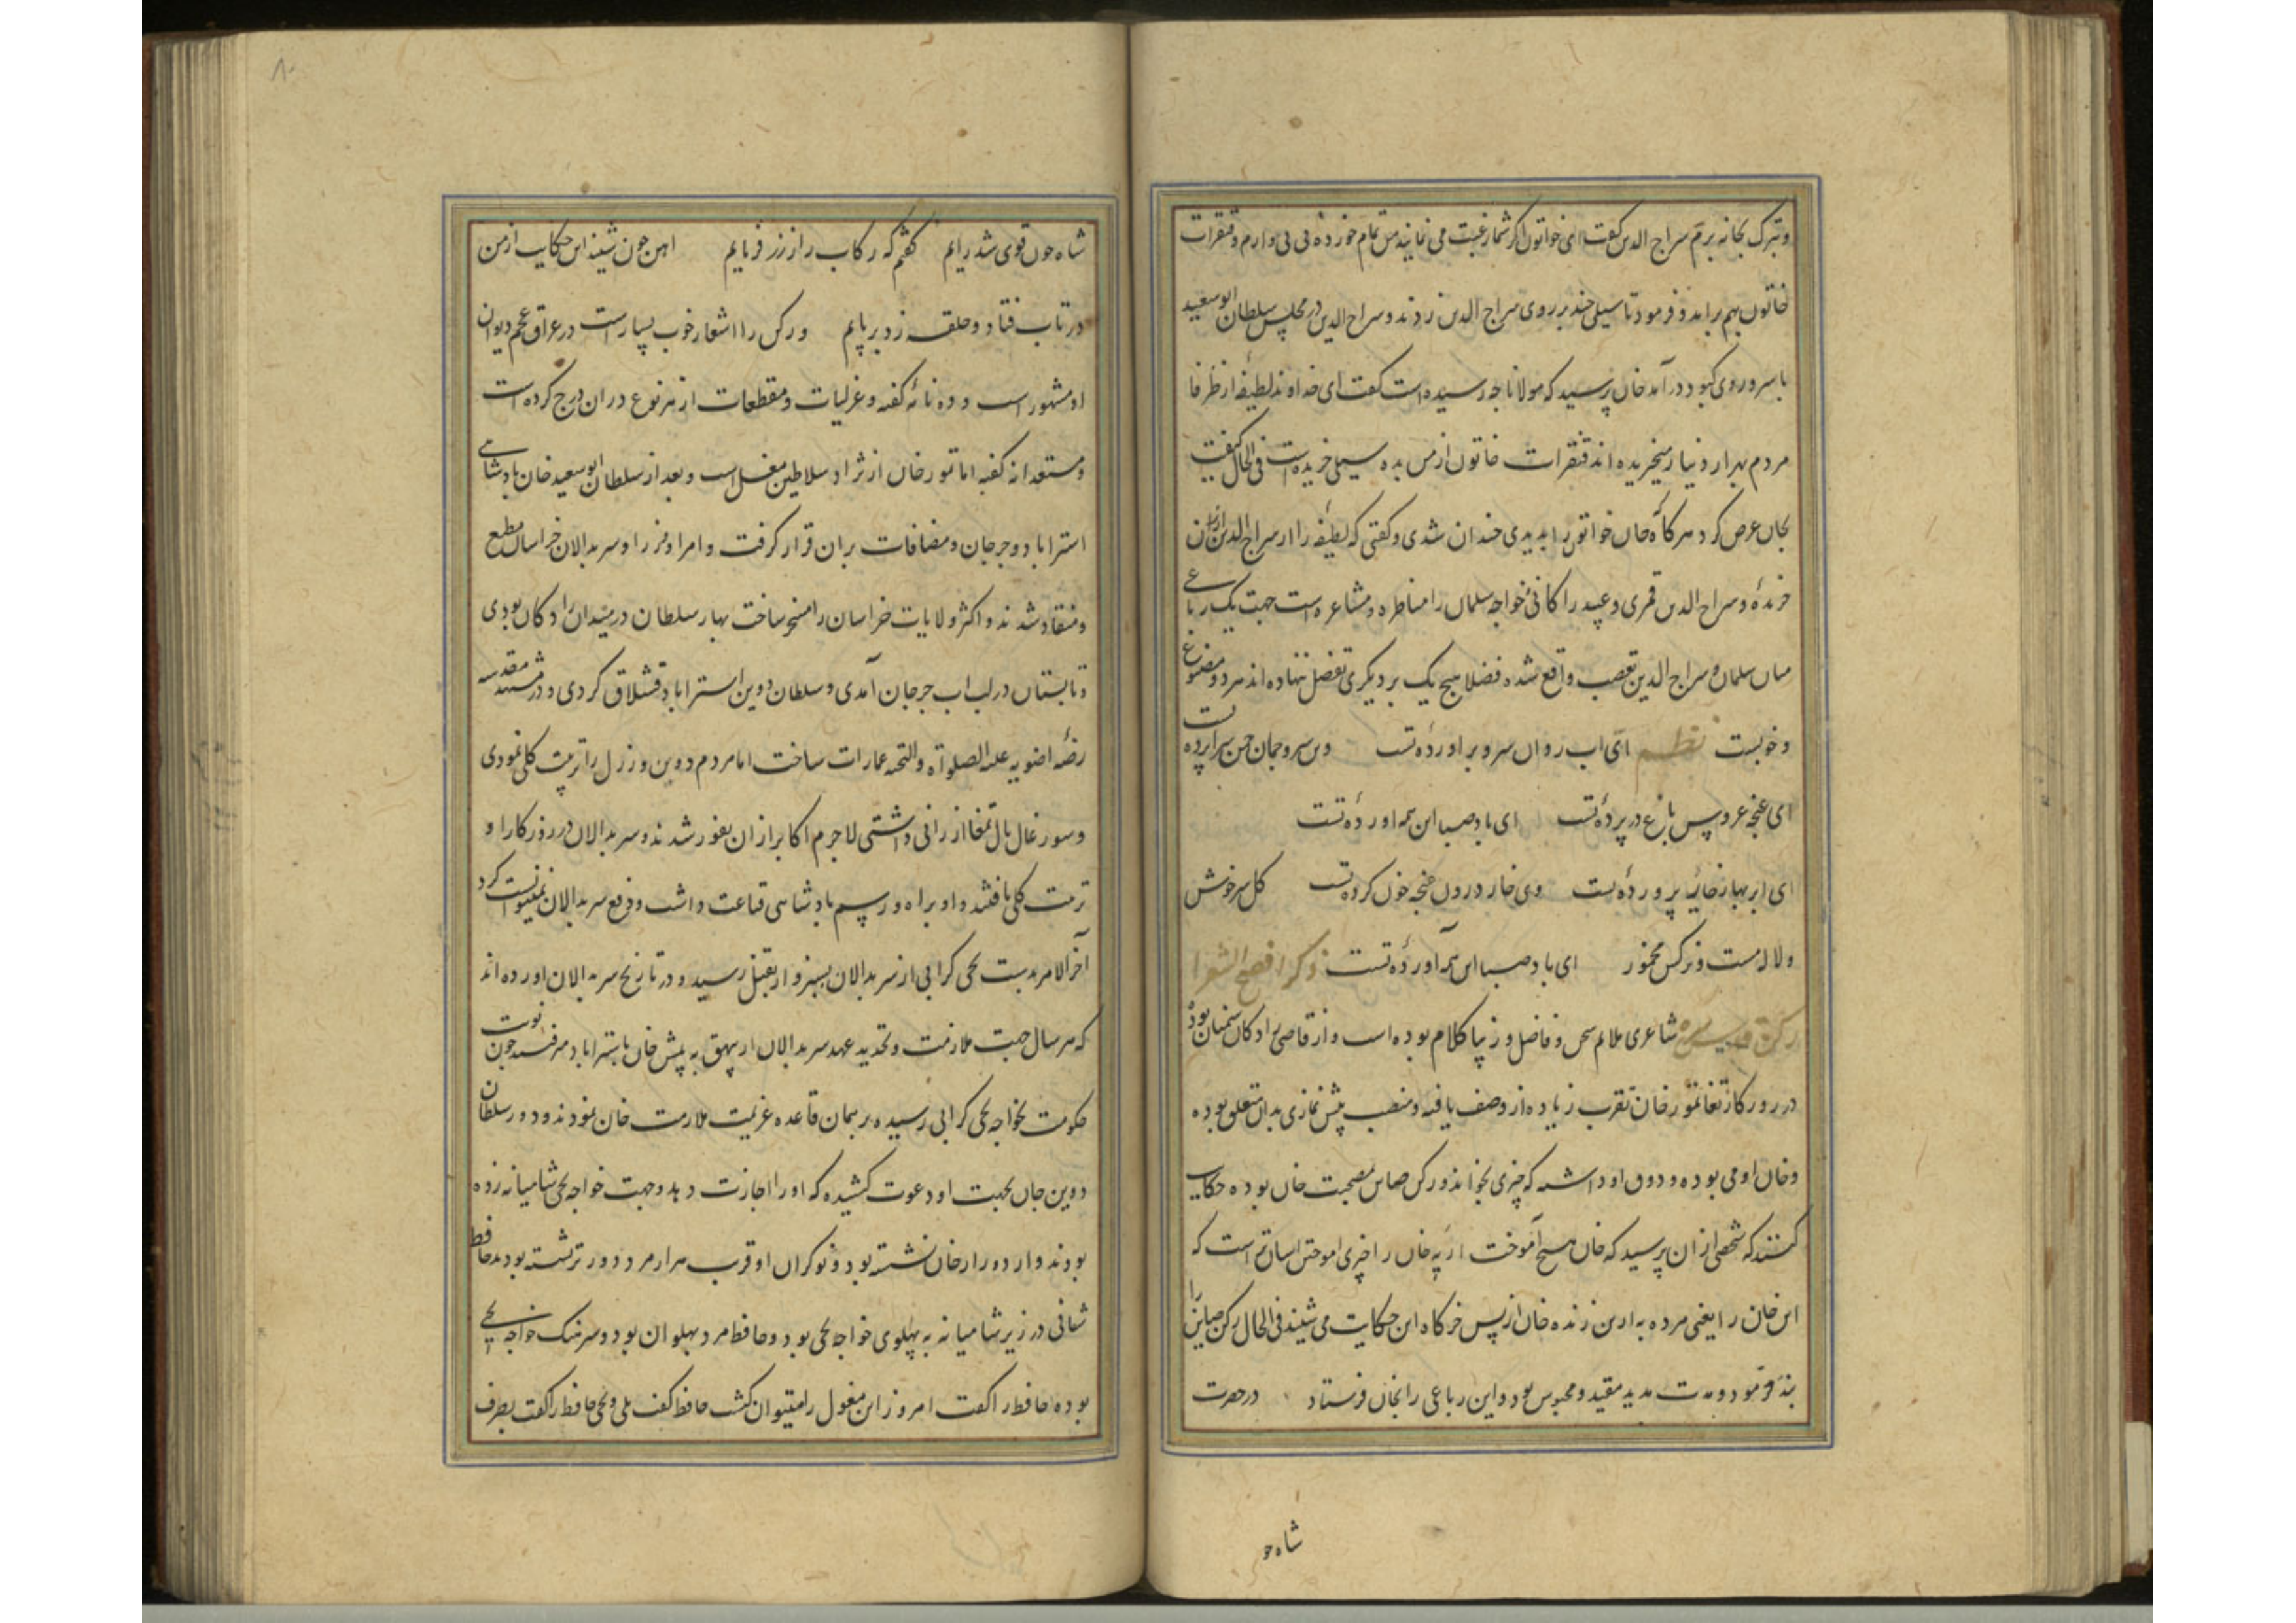 وتبرک بخانه برم سراج الدین کفت ای خواتون اکر شما رغبت می نمایید من تمام خورده فی بی دارم وقنقرات
خاتون بهم برامد و فرمود تا سیلی چند بر روی سراج الدین زدند و سراج الدین در مجلس سلطان ابوسعید
با سر و روی کبود در آمد خان پرسید که مولانا چه رسیده است کفت ای خداوند لطیفهٔ از ظرفا
مردم بهزار دینار میخریده اند قنقرات خاتون از من بده سیلی خریده است فی الحال کیفیت
بخان عرض کرد هر کاه خان خواتون را بدیدی خندان شدی و کفتی که لطیفه را از سراج الدین ارزان
خریدهٔ و سراج الدین قمری و عبید زاکانی و خواجه سلمان را مناظره و مشاعره است جهت یک رباعی
میان سلمان و سراج الدین تعصب واقع شده فضلا هیچ یک بر دیکری تفضل ننهاده اند هر دو مصنوع
و خوبست نظم ای اب روان سرو بر اوردهٔ تست وین سرو چمان چمن سراپرده تست
ای غنچه عروس باغ در پردهٔ تست ای باد صبا این همه اوردهٔ تست
ای ابر بهار خار پروردهٔ تست وی خار درون غنچه خون کرده تست کل سرخوش
و لاله مست و نرکس مخمور ای باد صبا این همه آوردهٔ تست ذکر افصح الشعرا
رکن صاین شاعری ملایم سخن و فاضل و زیبا کلام بوده است و از قاضی زادکان سمنان بوده
در روزکار تغاتمور خان تقرب زیاده از وصف یافته و منصب پیش نمازی بدان متعلق بوده
و خان امی بوده و ذوق او داشته که چیزی بخواند و رکن صاین مصحبت خان بوده حکایت
کنند که شخصی از ان پرسید که خان هیچ آموخت ازیه خان را چیزی اموختن اسان تر است که
این خان را یعنی مرده به ازین زنده خان از پس خرکاه این حکایت می شنید فی الحال رکن صاین را
بند فرمود و مدت مدید مقید و محبوس بود و این رباعی را بخان فرستاد در حضرت
شاه چو
شاه چون قوی شد رایم کفتم که رکاب را از زر فرمایم اهن چون شنید این حکایت از من
در تاب فتاد و حلقه زد بر پایم و رکن را اشعار خوب بسیار است در عراق عجم دیوان
او مشهور است و ده نامه کفته و غزلیات و مقطعات از هر نوع در ان درج کرده است
و مستعدانه کفته اما تمور خان از نژاد سلاطین مغل است و بعد از سلطان ابو سعید خان بادشاهی
استراباد و جرجان و مضافات بران قرار کرفت و امرا و مرزا و سربدالان خراسان مطیع
و منقاد شدند و اکثر ولایات خراسان را مسخر ساخت بهار سلطان در میدان رادکان بودی
و تابستان در لب اب جرجان آمدی و سلطان دوین استراباد قشلاق کردی و در مشهد مقدسه
رضه اضویه علیه الصلوة والتحیه عمارات ساخت اما مردم دوین و رزل را تربیت کلی نمودی
و سورغال بال تمغا ارزانی داشتی لاجرم اکابر از ان نفور شدند و سربدالان در روزکار او
تربیت کلی یافتند و او براه و رسم بادشاهی قناعت داشت و دفع سربدالان نمیتوانست کرد
آخر الامر بدست یحیی کرابی از سربدالان بسبزوار بقتل رسید و در تاریخ سربدالان اورده اند
که هر سال جهت ملازمت و تجدید عهد سربدالان از بیهق به پیش خان باستراباد میرفتند چون نوبت
حکومت بخواجه یحیی کرابی رسید بر همان قاعده عزیمت ملازمت خان نمودند و در سلطان
دوین خان بجهت او دعوت کشیده که او را اجازت دهد و جهت خواجه یحیی شامیانه زده
بودند و از دور ار خان نشسته بود و نوکران او قریب هزار مرد دورتر نشسته بودند حافظ
شانی در زیر شامیانه به پهلوی خواجه یحیی بود و حافظ مرد پهلوان بود و سرهنک خواجه یحیی
بوده حافظ را کفت امروز این مغول را میتوان کشت حافظ کفت بلی و یحیی حافظ را کفت بطرف